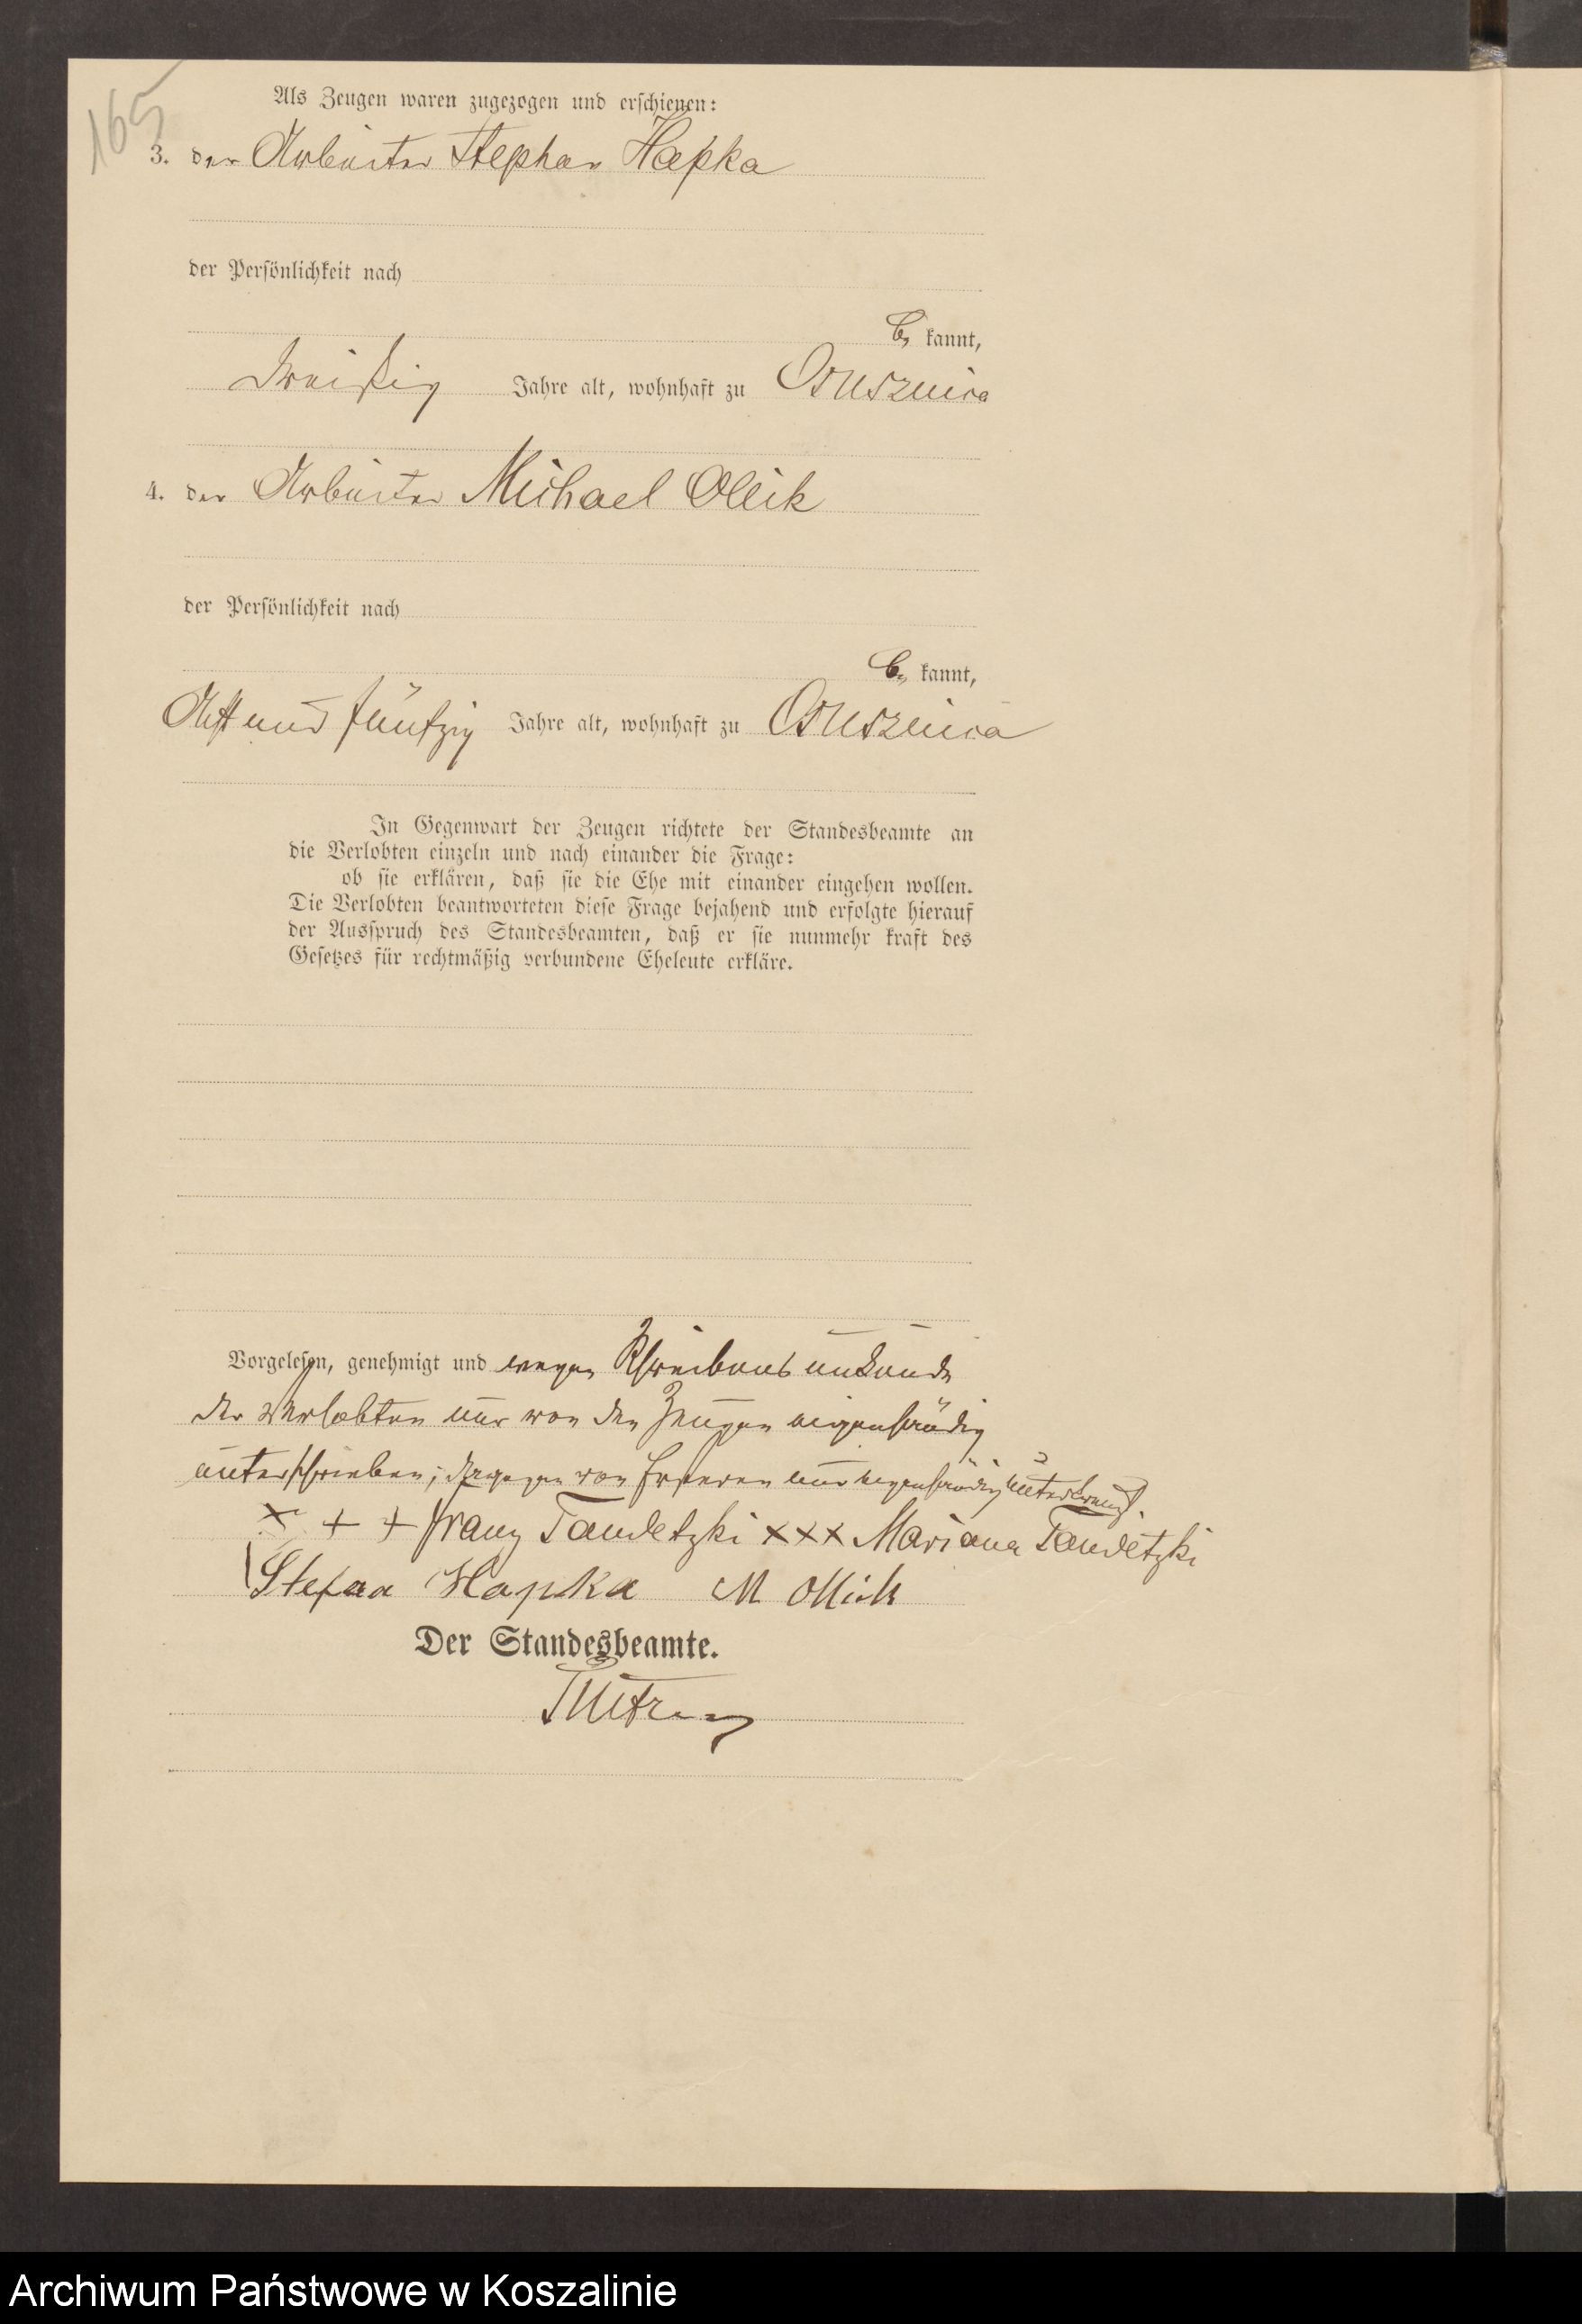 165
Als Zeugen waren zugezogen und erschienen:
3. der Arbeiter Stephan Hapka
der Persönlichkeit nach
be kannt,
dreißig Jahre alt, wohnhaft zu Ossusznica
4. der Arbeiter Michael Ollik
der Persönlichkeit nach
be kannt,
Acht und fünfzig Jahre alt, wohnhaft zu Ossusznica
In Gegenwart der Zeugen richtete der Standesbeamte an
die Verlobten einzeln und nach einander die Frage:
ob sie erklären, daß sie die Ehe mit einander eingehen wollen.
Die Verlobten beantworteten diese Frage bejahend und erfolgte hierauf
der Ausspruch des Standesbeamten, daß er sie nunmehr kraft des
Gesetzes für rechtmäßig verbundene Eheleute erkläre.
Vorgelesen, genehmigt und wegen Schreibensunkunde
der Verlobten nur von den Zeugen eigenhändig
unterschrieben; dagegen von Ersteren nur eigenhändig unterkreuzt.
+ + + Franz Tandetzki xxx Mariana Tandetzki
Stefan Hapka M Ollik
Der Standesbeamte.
Archiwum Państwowe w Koszalinie